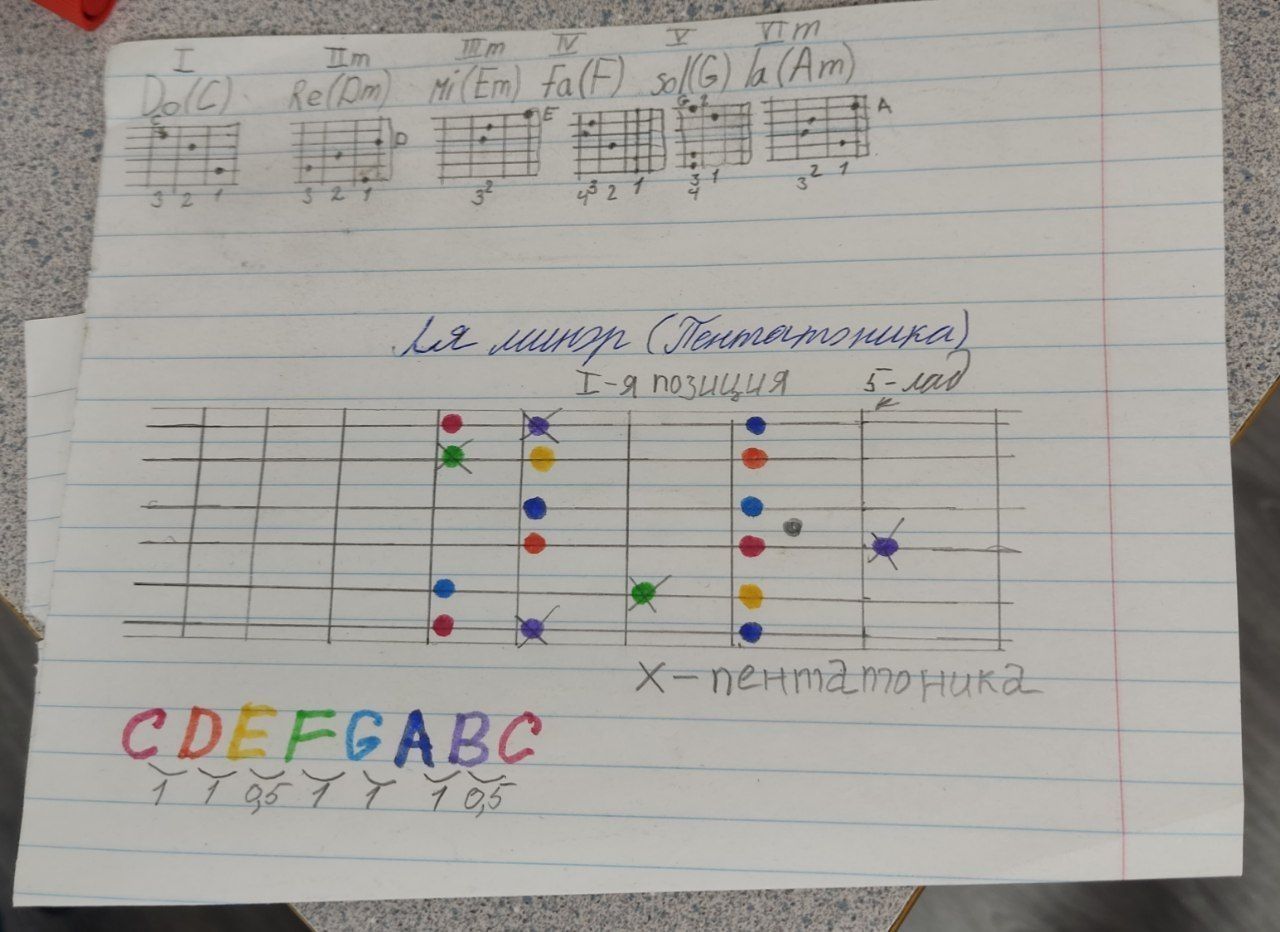 I IIm IIIm IV V VIm
Do(C) Re(Dm) Mi(Em) Fa(F) sol(G) la(Am)
C D E G A
3 2 1 3 2 1 3 2 4 3 2 1 3 4 1 2 3 2 1
Ля минор (Пентатоника)
I-я позиция 5-лад
X-пентатоника
C D E F G A B C
1 1 0,5 1 1 1 0,5